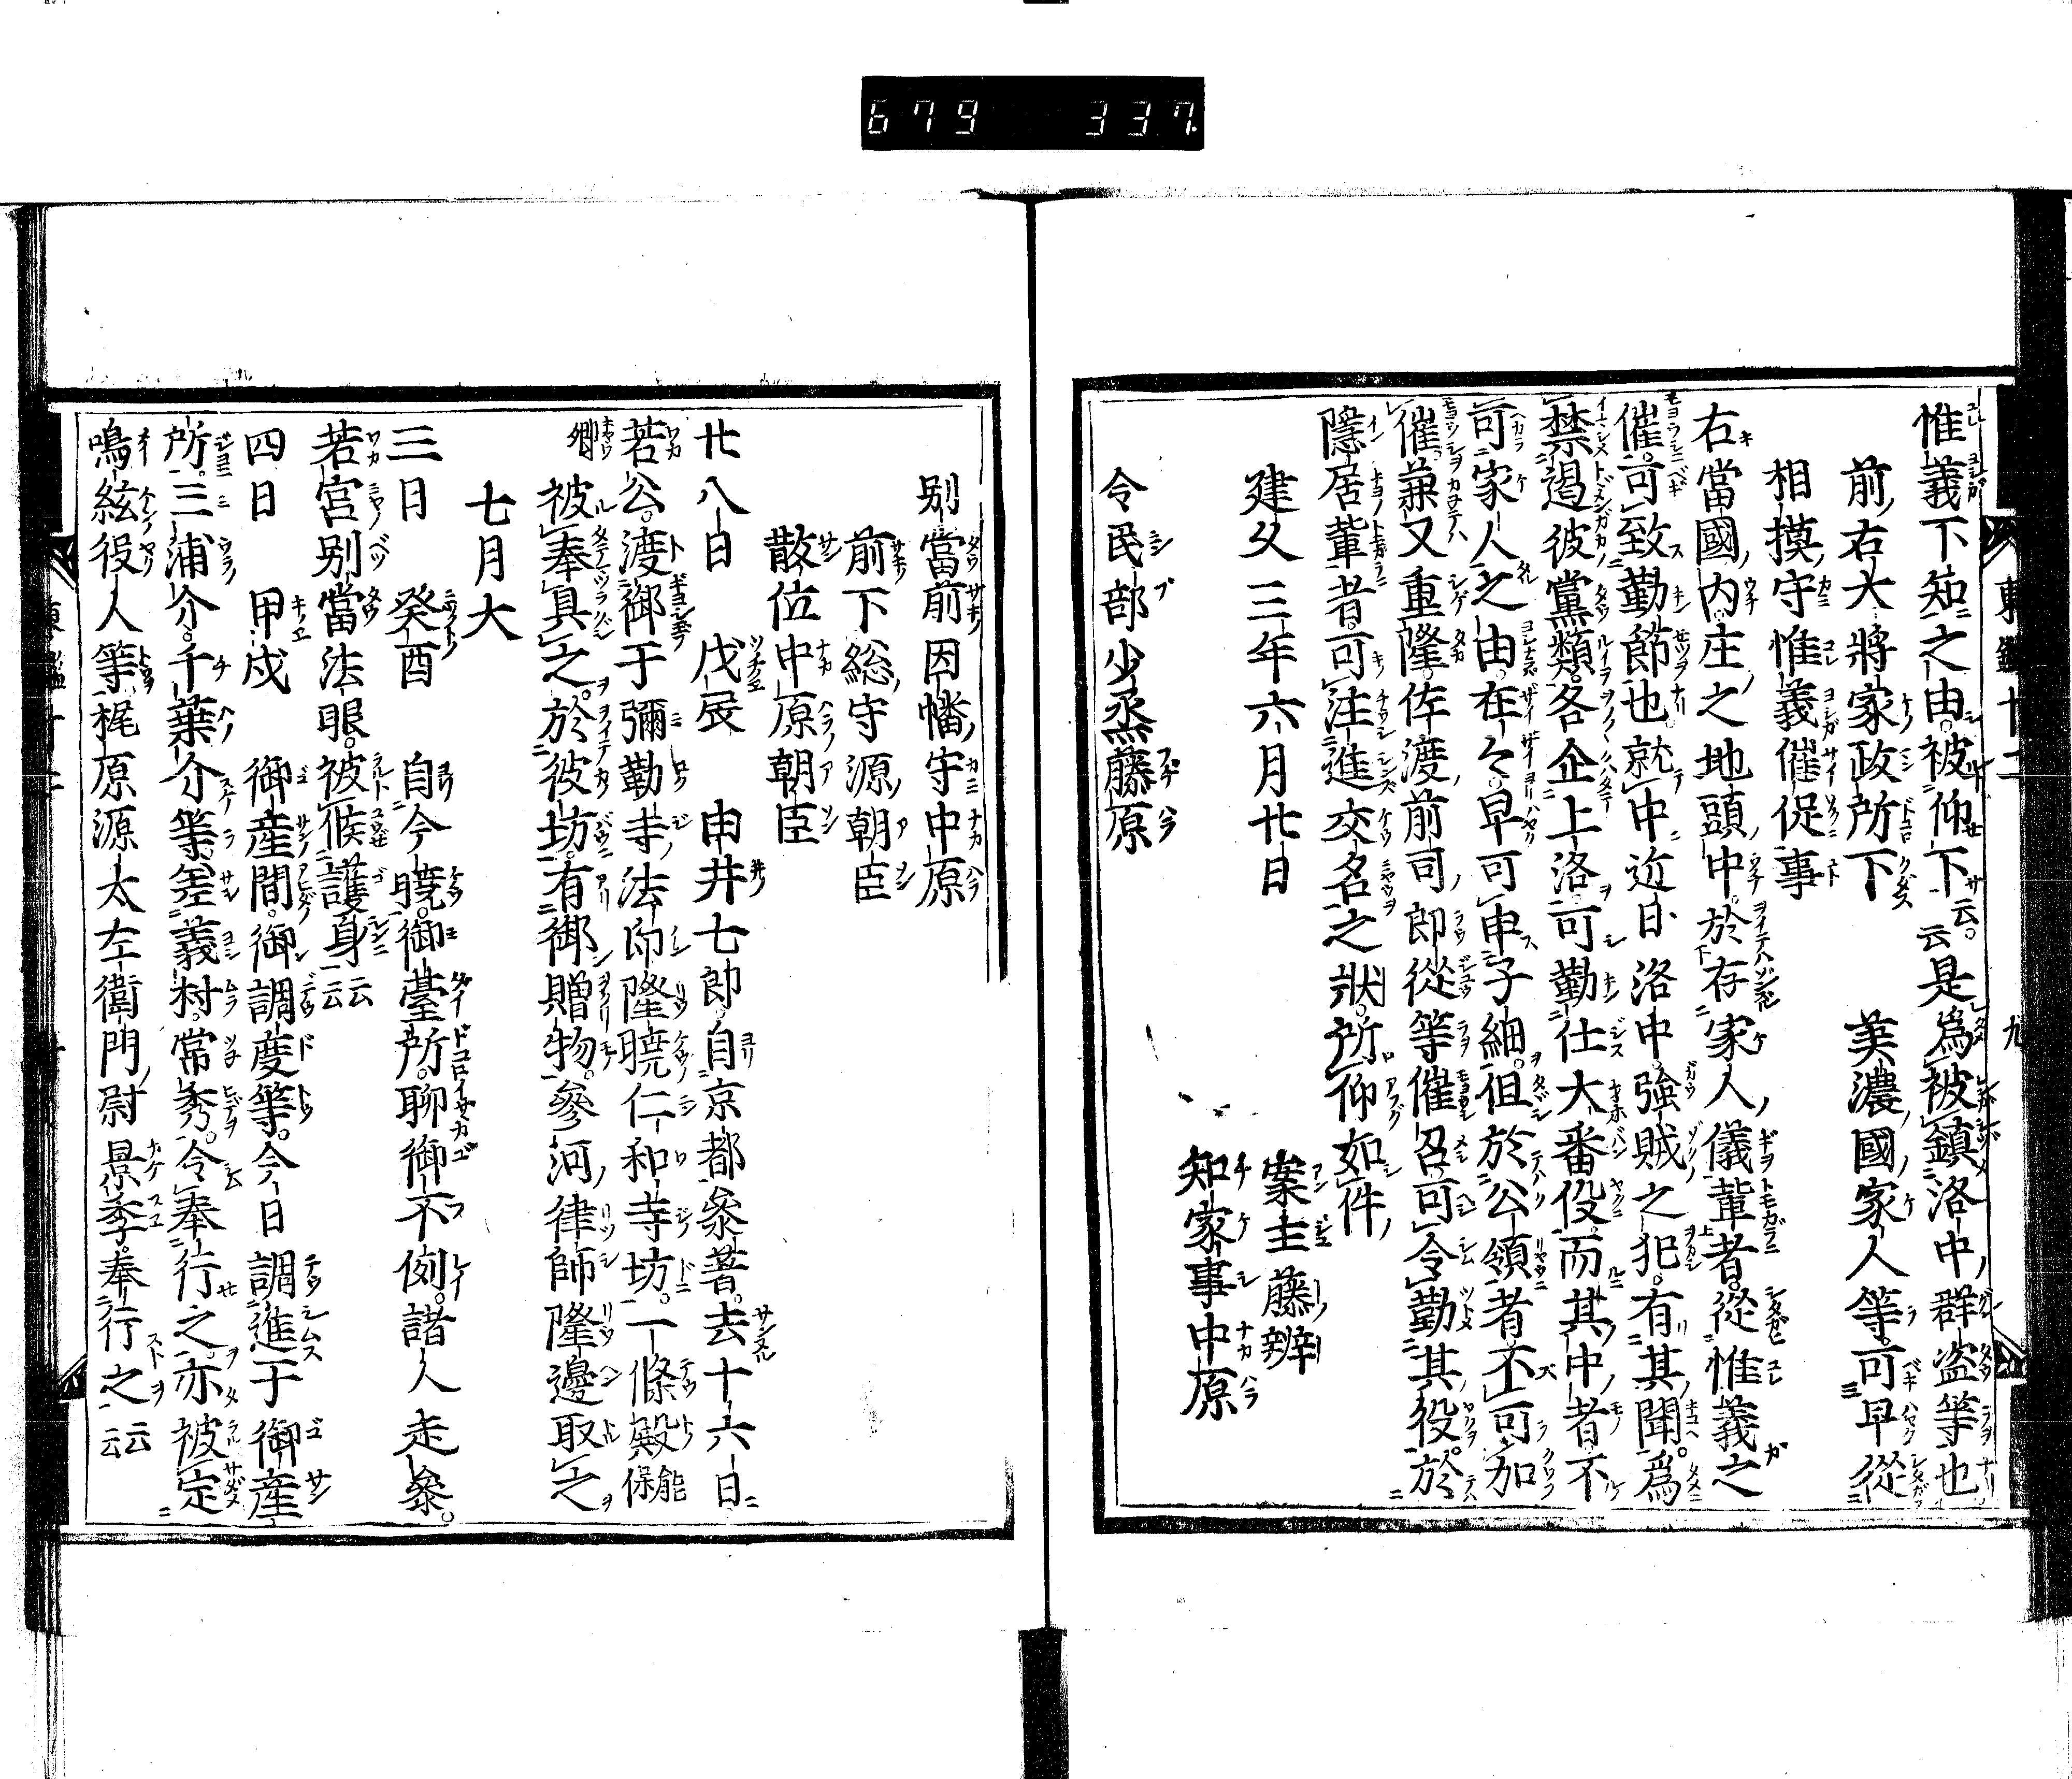 679 337
東鑑十二 九
惟義下知之由。被仰下云云。是爲被鎮洛中群盗等也
前右大將家政所下 美濃國家人等。可早從
相摸守惟義催促事
右當國内庄之地頭中。於存家人儀輩者。從惟義之
催。可致勤節也就中近日洛中。強賊之犯。有其聞。爲
禁遏彼黨類。各企上洛可勤仕大番役。而其中者不
可家人之由。在々。早可申子細。但於公領者不可加
催。兼又重隆。佐渡前司郎從等催召。可令勤其役。於
隱居輩者。可注進交名之狀。所仰如件
建久三年六月廿日 案主藤辨
知家事中原
令民部少丞藤原
別當前因幡守中原
前下総守源朝臣
散位中原朝臣
廿八日 戊辰 申井七郎自京都參著。去十六日
若公。渡御于彌勤寺法印隆曉仁和寺坊。一條殿能保
卿被奉具之。於彼坊。有御贈物。參河律師隆邊取之
七月大
三日 癸酉 自今曉。御臺所。聊御不例。諸人走參。
若宮別當法眼。被候護身云云
四日 甲戌 御産間。御調度等。今日調進于御産
所。三浦介。千葉介等。差義村。常秀。令奉行之。亦被定
鳴絃役人等。梶原源太左衛門尉景季。奉行之云云